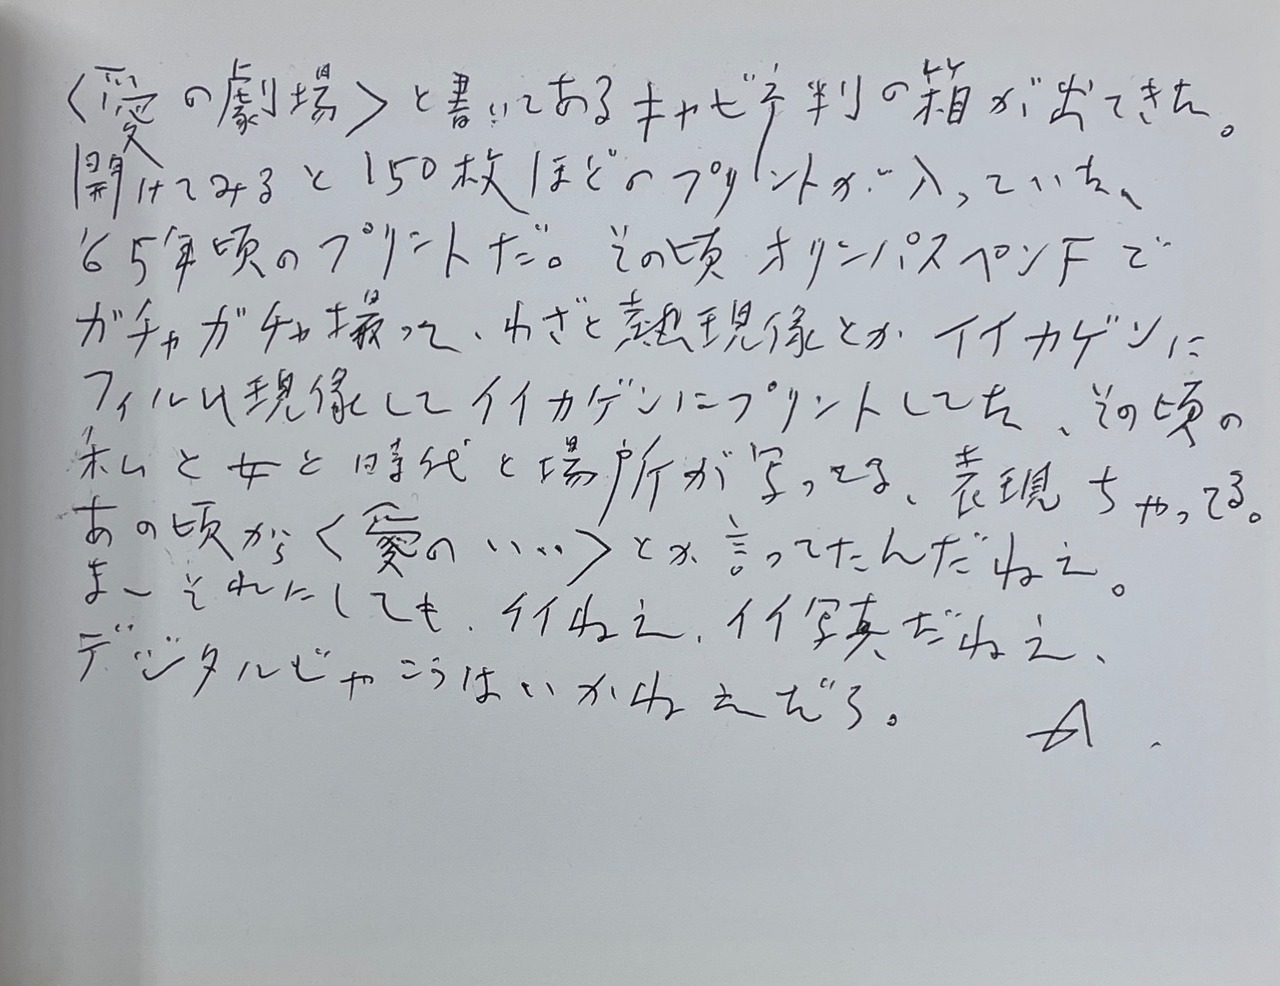 〈愛の劇場〉と書いてあるキャビネ判の箱が出てきた。
開けてみると150枚ほどのプリントが入っていた、
'65年頃のプリントだ。その頃オリンパスペンFで
ガチャガチャ撮って、わざと熱現像とかイイカゲンに
フィルム現像してイイカゲンにプリントしてた、その頃の
私と女と時代と場所が写ってる、表現ちゃってる。
あの頃から〈愛の……〉とか言ってたんだねえ。
まーそれにしても、イイねえ、イイ写真だねえ、
デジタルじゃこうはいかねえだろ。
A.